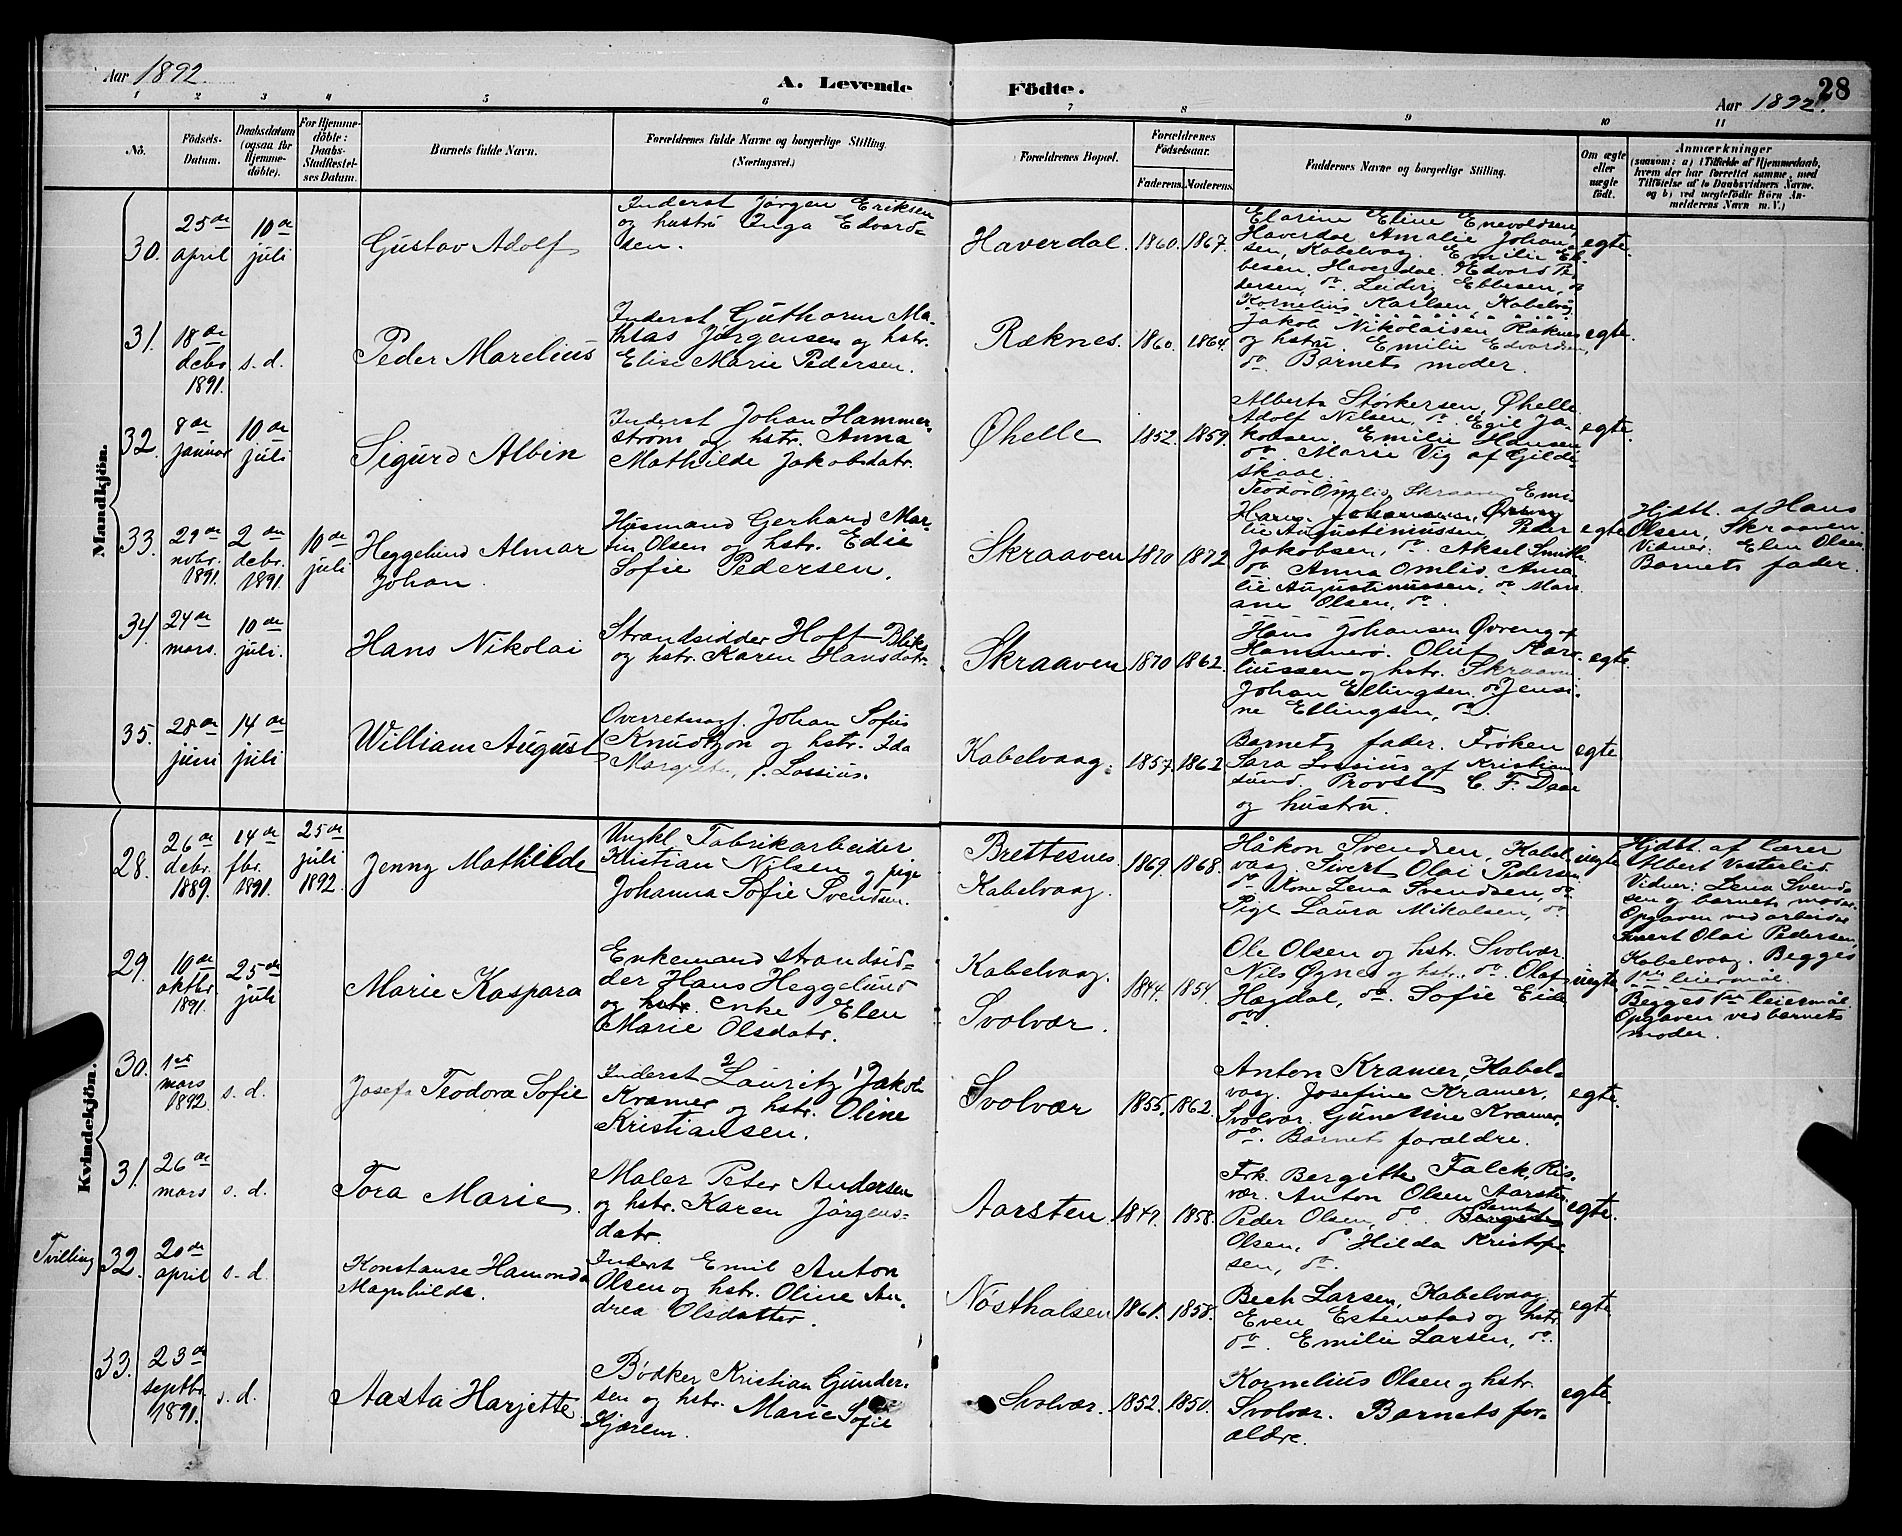 Aar 1892.
A. Levende Födte.
28
Aar 1892.
1 2 3 4 5 6 7 8 9 10 11
No.
Födsels-Datum.
Daabsdatum (ogsaa for Hjemmedöbte).
For Hjemmedöbte: Daabs-Stadfæstelses Datum.
Barnets fulde Navn.
Forældrenes fulde Navne og borgerlige Stilling (Næringsvei.)
Forældrenes Bopæl.
Forældrenes Födselsaar.
Faderens. Moderens.
Faddernes Navne og borgerlige Stilling.
Om ægte eller uægte födt.
Anmærkninger
(saasom: a) i Tilfælde af Hjemmedaab, hvem der har forrettet samme, med Tilföielse af to Daabsvidners Navne, og b) ved uægtefödte Börn Anmelderens Navn m. V.)
Mandkjön.
30.
25de april
10de juli
Gustav Adolf
Inderst Jørgen Eriksen
og hustru Inga Edvard-
sen.
Haverdal.
1860. 1867.
Elarine Eline Enevoldsen,
Haverdal Amalie Johan-
sen, Kabelvaag. Emilie Eb-
besen. Haverdal. Edvard Pe-
dersen, do. Ludvig Ebbesen, do
Kornelius Karlsen, Kabelvåg
egte.
31.
18de debr 1891.
s. d.
Peder Marelius
Inderst Guthorm Ma-
thias Jørgensen og hstr.
Elise Marie Pedersen.
Ræknes.
1860. 1864.
Jakob Nikolaisen Ræknes
og hstru. Emilie Edvardsen,
do. Barnets moder.
egte.
32.
8de januar
10de juli
Sigurd Albin
Inderst Johan Hammer-
strøm og hstr. Anna
Mathilde Jakobsdatr.
Øhelle
1852. 1859.
Alberta Størkersen, Øhelle
Adolf Nilsen, do. Egil Ja-
kobsen. Emilie Hansen
do. Marie Vig af Gilde-
skaal.
egte.
33.
29de novbr. 1891.
2de debr. 1891
10de juli
Heggelund Almar
Johan.
Husmand Gerhard Mar-
tin Olsen og hstr. Edie
Sofie Pedersen.
Skraaven
1870 1872
Teodor Omlid, Skraaven Emi-
lie Augustinussen, Peder
Jakobsen, do. Aksel Smith
do Anna Omlid. Ama-
lie Augustinussen, do Mari-
ane Olsen, do.
egte
Hjdt. af Hans
Olsen, Skraaven
Vidner: Elen Olsen
Barnets fader.
34.
24de mars.
10de juli.
Hans Nikolai
Strandsidder Hoft Bliks
og hstr. Karen Hansdatr.
Skraaven
1870 1862.
Hans Johansen Øvreng af
Hammerø. Oluf Kare-
liussen og hstr. Skraaven
Johan Ellingsen. do Jensi-
ne Ellingsen, do.
egte.
35.
28de juni
14de juli
William August
Overretssagf. Johan Sofus
Knudtzon og hstr. Ida
f. Lossius.
Kabelvaag.
1857. 1862
Barnets fader. Frøken
Sara Lossius af Kristian-
sund. Provst C. F. Daae
og hustru.
egte
Kvindekjön.
28.
26de debr. 1889.
14de fbr. 1891.
25de juli 1892.
Jenny Mathilde
Ungkl Fabrikarbeider
Kristian Nilsen og pige
Johanna Sofie Svendsen.
Brettesnes
Kabelvaag.
1869. 1868.
Håkon Svendsen, Kabel-
vaag Sivert Olai Pedersen
do Kone Lena Svendsen, do
Pige Laura Mikalsen, do
uegte
Hjdt. af lærer
Albert Vesterlid.
Vidner: Lena Svend-
sen og barnets moder.
Opgaven ved arbeider
Sivert Olai Pedersen,
Kabelvaag. Begges
1ste leiermål.
29.
10de oktbr 1891.
25de juli
Marie Kaspara
Enkemand strandsid-
der Hans Heggelund
og hstr. enke Elen
Marie Olsdatr.
Kabelvaag.
Svolvær.
1844. 1854.
Ole Olsen og hstr. Svolvær
Nils Øgnes og hstr. do. Olaf
Hægdal, do. Sofie Eide
do.
uegte
Begges 1ste leiermål.
Opgaven ved barnets
moder.
30.
1ste mars 1892.
s. d.
Josefa Teodora Sofie
Inderst 2 Lauritz 1 Jakob
Kramer og hstr. Oline
Kristiansen.
Svolvær
1855. 1862.
Anton Kramer, Kabel-
vaag. Josefine Kramer,
Svolvær. Gunelline Kramer,
do. Barnets forældre.
egte.
31.
26de mars
s. d.
Tora Marie.
Maler Peter Andersen
og hstr. Karen Jørgens-
datr.
Aarsten.
1849. 1858.
Frk Bergitte Falck, Ris-
vær. Anton Olsen Aarsten
Peder Olsen, do. Bernt
Olsen, do Hilda Kristofe-
sen, do.
egte.
Tvilling
32.
20de april
s. d.
Konstanse Hamonda
Magnhilde.
Inderst Emil Anton
Olsen og hstr. Oline An-
drea Olsdatter.
Nøsthalsen
1861. 1858.
Bech Larsen, Kabelvaag
Even Estenstad og hstr.
do. Emilie Larsen, do.
egte
33.
23de septbr 1891.
s. d.
Aasta Harjette
Bødker Kristian Gunder-
sen og hstr. Marie Sofie
Skjærem.
Svolvær.
1852. 1850.
Kornelius Olsen og hstr.
Svolvær. Barnets for-
ældre.
egte